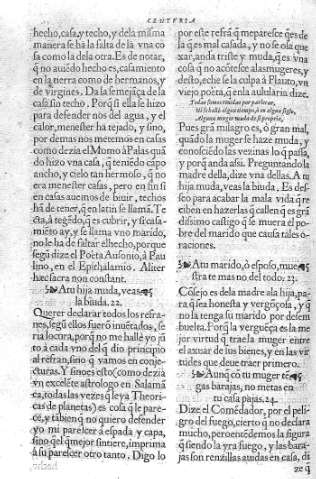 CENTVRIA
hecho, casa, y techo, y dela misma
manera se ha la falta de la vna co
sa como la dela otra. Es de notar,
q̃ no auiẽdo hecho es, casamiento
en la tierra como de hermanos, y
de virgines. Da la semejãça de la
casa sin techo. Porq̃ si ella se hizo
para defender nos del agua, y el
calor, menester ha tejado, y sino,
por demas nos metemos en casas
como dezia el Momo à Palas quã
do hizo vna casa, q̃ teniẽdo cãpo
ancho, y cielo tan hermoso, q̃ no
era menester casas, pero en fin si
en casas auemos de biuir, techos
hã de tener, q̃ en latin se llama. Te
cta, à tegẽdo, q̃ es cubrir, y si casa-
miẽto ay, y se llama vno marido,
no le ha de faltar el hecho, porque
segũ dize el Poeta Ausonio, à Pau
lino, en el Epithalamio. Aliter
hæc sacra non constant.
A tu hija muda, veas
la biuda. 22.
Querer declarar todos los refra-
nes, segũ ellos fuerõ inuẽtados, se
ria locura, porq̃ no me hallè yo jũ
to à cada vno del q̃ dio principio
al refran, sino q̃ vamos en conje-
cturas. Y sino es esto (como dezia
vn excelẽte astrologo en Salamã
ca, todas las vezes q̃ leya Theori-
cas de planetas) es cosa q̃ le pare-
ce, y tãbien q̃ no quiero defender
yo mi parecer à espada y capa,
sino q̃ el q̃ mejor sintiere, imprima
à su parecer otro tanto. Digo lo
por este refrã q̃ me paresce q̃ es de
la q̃ es mal casada, y no se osa que
xar, anda triste y muda, q̃ es vna
cosa q̃ no acõtesce alas mugeres, y
desto, eche se la culpa à Plauto, vn
viejo poëta, q̃ en la aulularia dize.
Todas somos tenidas por parleras,
Ni se hallò algun tiempo, ò en algun siglo,
Alguna muger muda de si propria,
Pues grã milagro es, ò gran mal,
quãdo la muger se haze muda, y
conosciẽdo las vezinas lo q̃ passa,
y porq̃ anda assi. Preguntando la
madre della, dize vna dellas. A tu
hija muda, veas la biuda. Es des-
seo para acabar la mala vida q̃ re
ciben en hazerlas q̃ callen q̃ es grã
dissimo castigo q̃ se muera el po-
bre del marido que causa tales o-
raciones.
A tu marido, ò esposo, mue
stra te mas no del todo. 23.
Cõsejo es dela madre ala hija, pa-
ra q̃ sea honesta y vergõçosa, y q̃
no la tenga su marido por desem
buelta. Porq̃ la verguẽça es la me
jor virtud q̃ trae la muger entre
el axuar de sus bienes, y en las vir
tudes que deue traer primero.
Aunq̃ cõ tu muger tẽ-
gas barajas, no metas en
tu casa pajas. 24.
Dize el Comẽdador, por el peli-
gro del fuego, cierto q̃ no declara
mucho, pero entẽdemos la figura
q̃ siendo la yra fuego, y las bara-
jas son renzillas auidas en casa, di
ze q̃